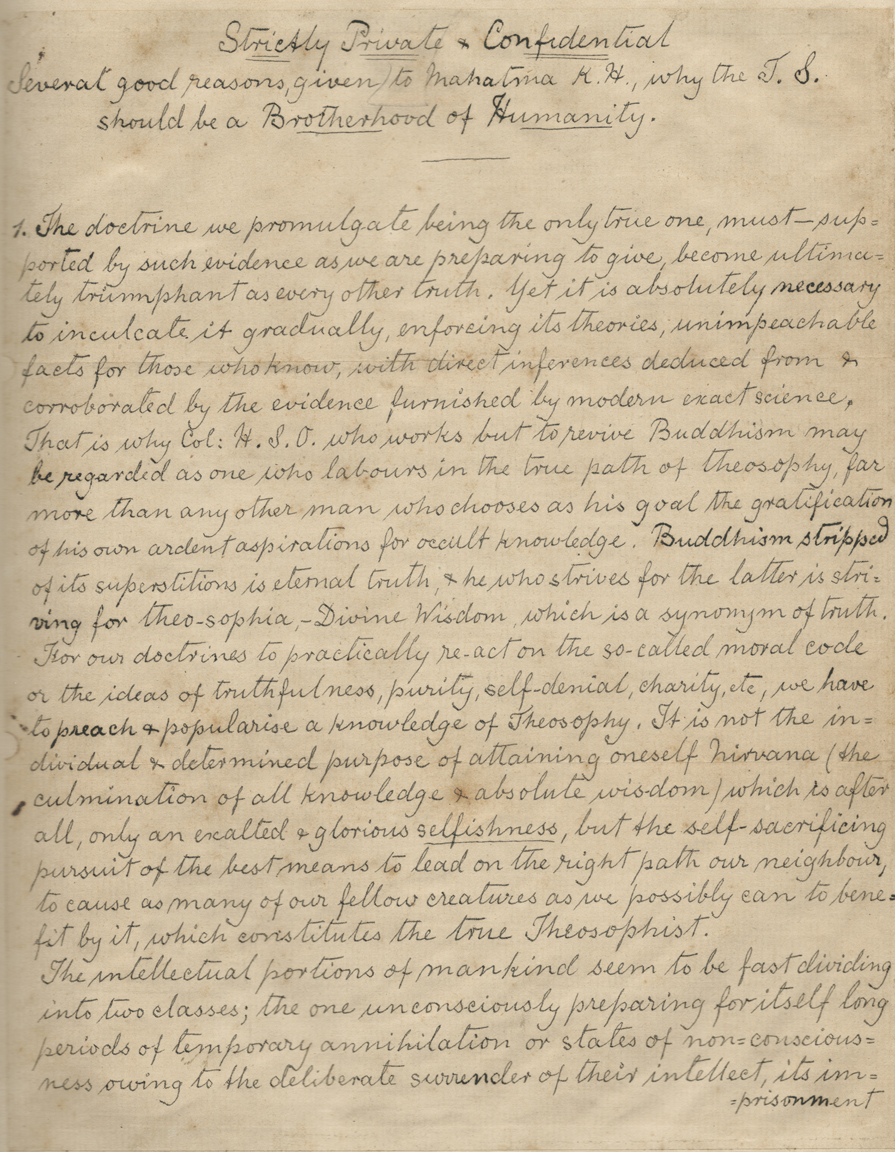 Strictly Private & Confidential
Several good reasons, given to Mahatma K.H., why the T. S.
should be a Brotherhood of Humanity.
1. The doctrine we promulgate being the only true one, must—sup=
ported by such evidence as we are preparing to give, become ultima=
tely triumphant as every other truth. Yet it is absolutely necessary
to inculcate it gradually, enforcing its theories, unimpeachable
facts for those who know, with direct inferences deduced from &
corroborated by the evidence furnished by modern exact science.
That is why Col: H. S. O. who works but to revive Buddhism may
be regarded as one who labours in the true path of theosophy, far
more than any other man who chooses as his goal the gratification
of his own ardent aspirations for occult knowledge. Buddhism stripped
of its superstitions is eternal truth, & he who strives for the latter is stri=
ving for theo-sophia,—Divine Wisdom, which is a synonym of truth.
For our doctrines to practically re-act on the so-called moral code
or the ideas of truthfulness, purity, self-denial, charity, etc, we have
to preach & popularise a knowledge of Theosophy. It is not the in=
dividual & determined purpose of attaining oneself Nirvana (the
culmination of all knowledge & absolute wisdom) which is after
all, only an exalted & glorious selfishness, but the self-sacrificing
pursuit of the best means to lead on the right path our neighbour,
to cause as many of our fellow creatures as we possibly can to bene=
fit by it, which constitutes the true Theosophist.
The intellectual portions of mankind seem to be fast dividing
into two classes; the one unconsciously preparing for itself long
periods of temporary annihilation or states of non=conscious=
ness owing to the deliberate surrender of their intellect, its im=
=prisonment